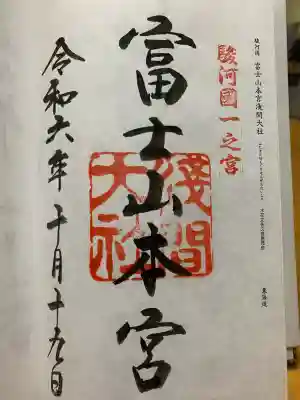 駿河国 富士山本宮浅間大社
東海道
駿河國一之宮
富士山本宮
淺間大社
令和六年十月十五日